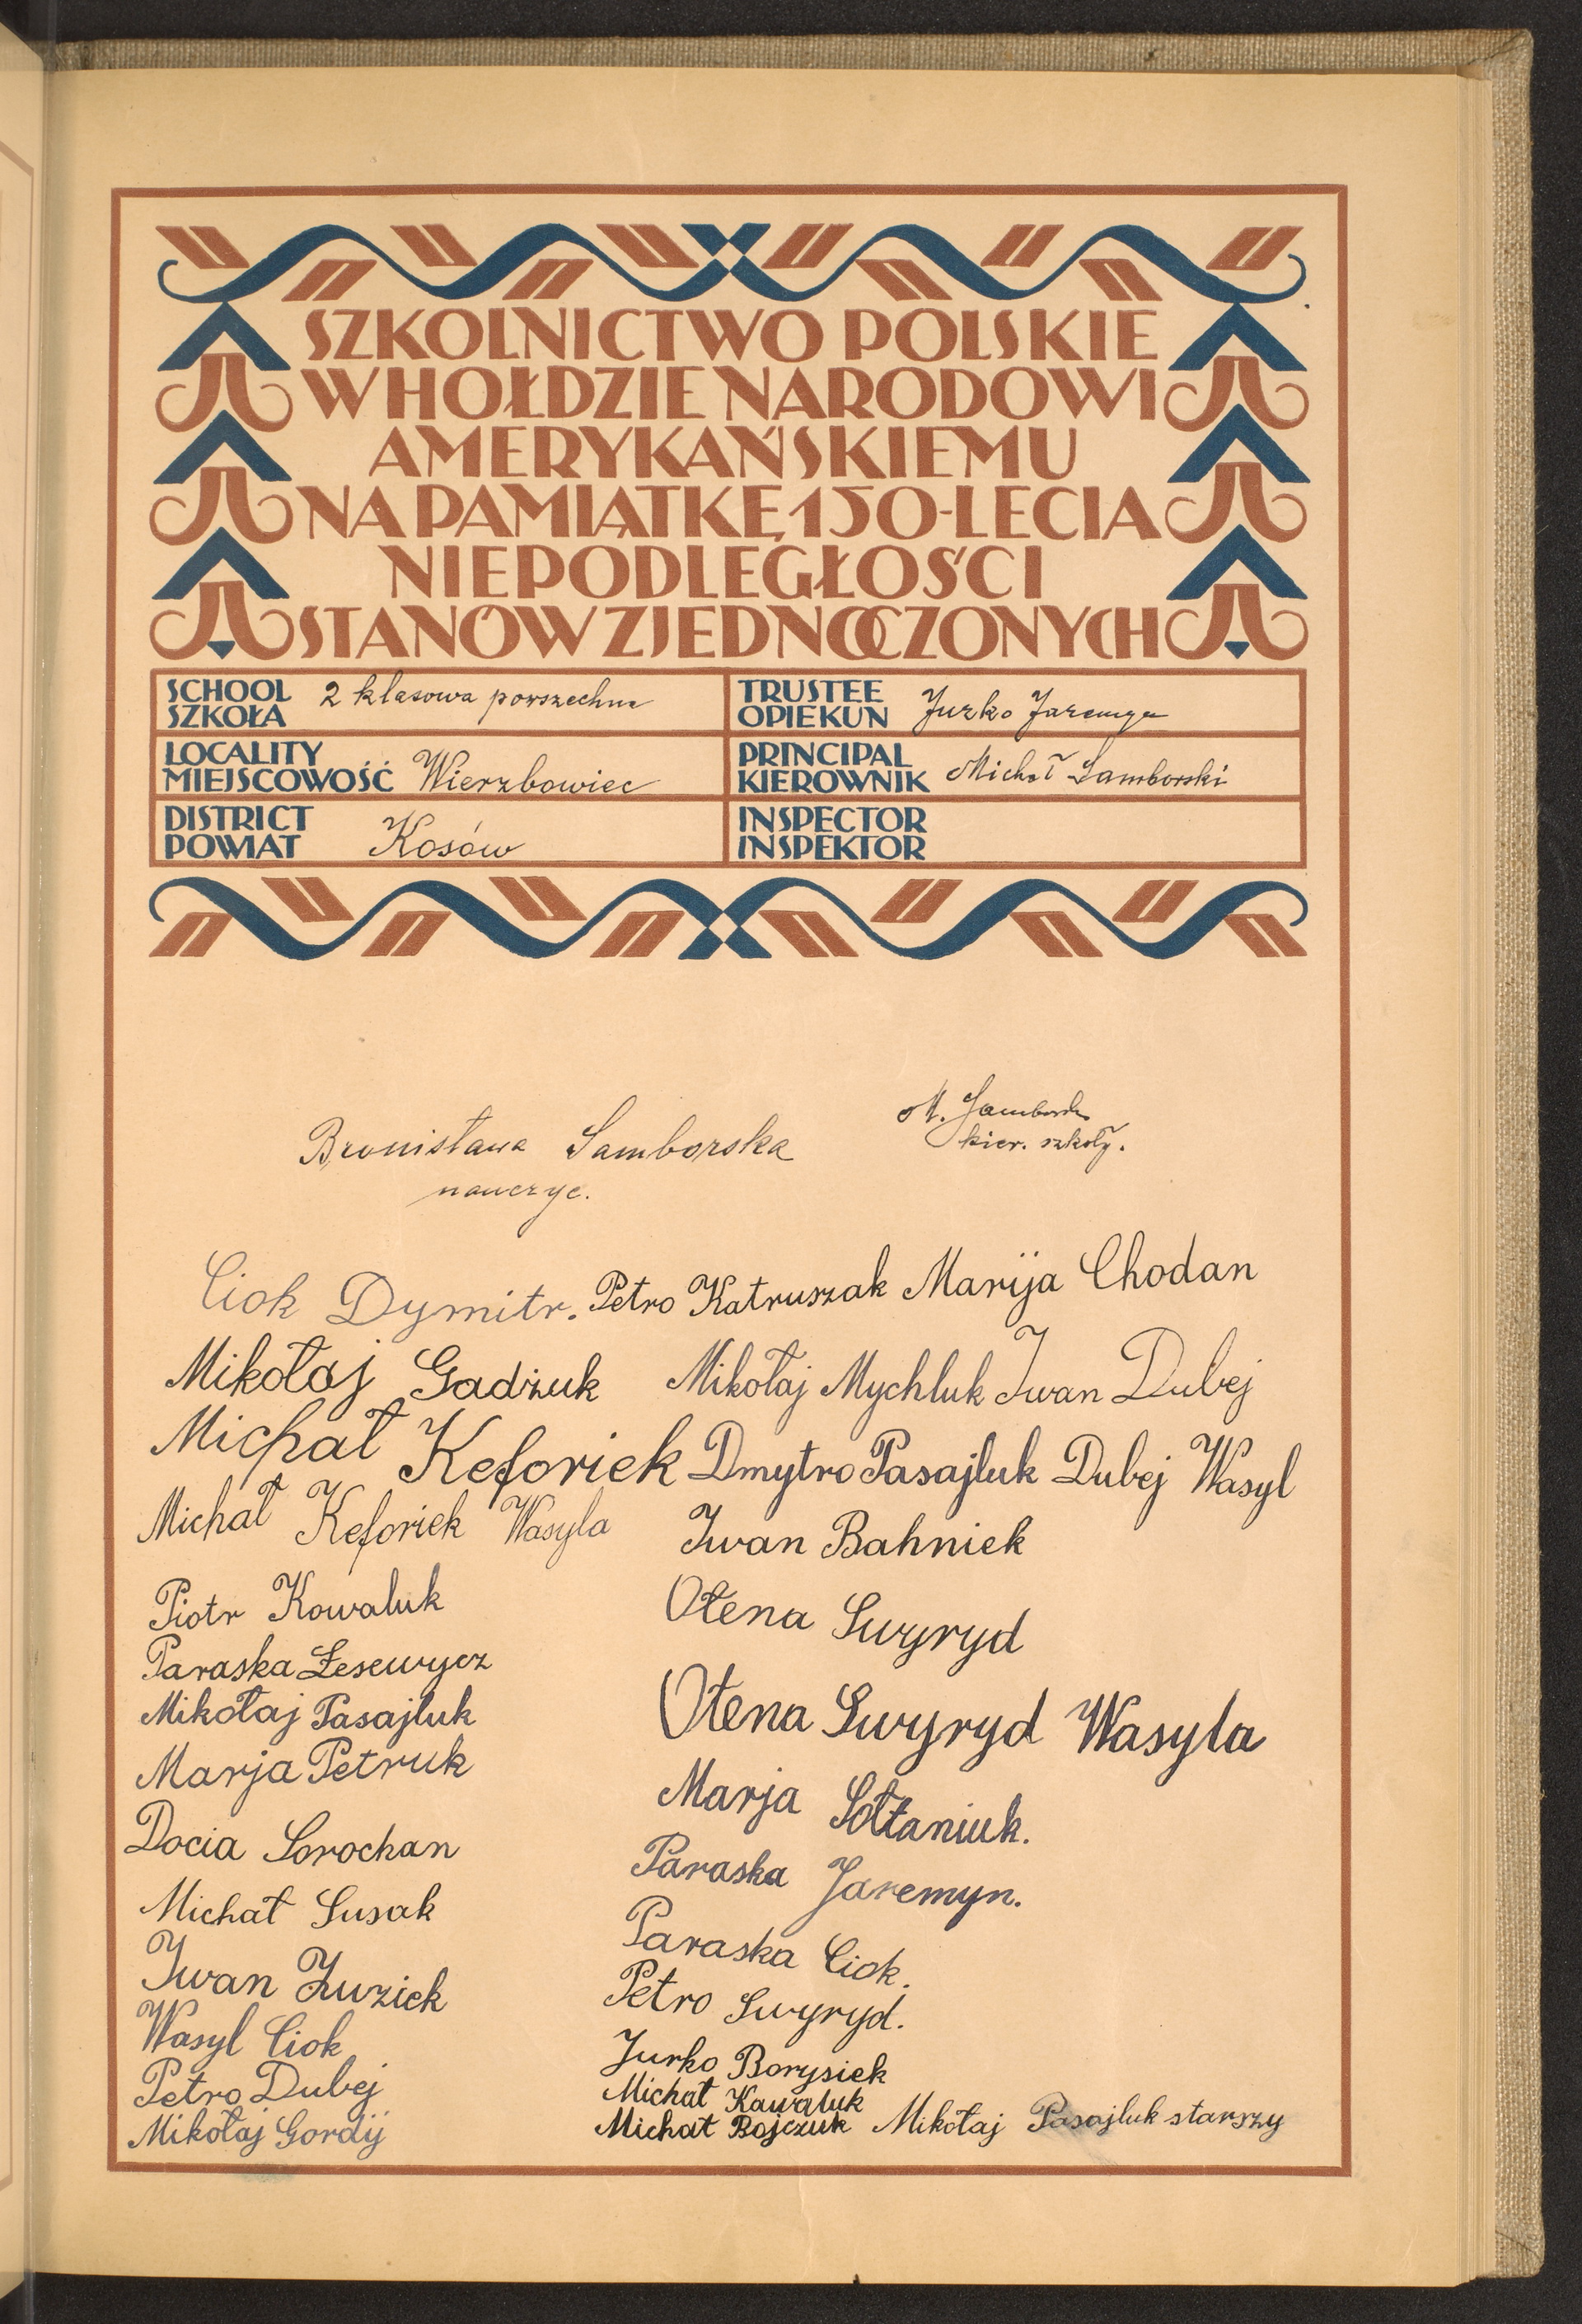 SZKOLNICTWO POLSKIE
W HOŁDZIE NARODOWI
AMERYKAŃSKIEMU
NA PAMIĄTKĘ 150-LECIA
NIEPODLEGŁOŚCI
STANÓW ZJEDNOCZONYCH
SCHOOL
SZKOŁA 2 klasowa powszechna
TRUSTEE
OPIEKUN Jurko Jaremyn
LOCALITY
MIEJSCOWOŚĆ Wierzbowiec
PRINCIPAL
KIEROWNIK Michał Samborski
DISTRICT
POWIAT Kosów
INSPECTOR
INSPEKTOR
M. Samborski
kier. szkoły.
Bronisława Samborska
nauczyc.
Ciok Dymitr. Petro Katruszak Marija Chodan
Mikołaj Gadżuk Mikołaj Mychluk Iwan Dubej
Michał Keforiek Dmytro Pasajluk Dubej Wasyl
Michał Keforiek Wasyla Iwan Bahniek
Piotr Kowaluk
Paraska Łesewycz
Mikołaj Pasajluk
Marja Petruk
Docia Sorochan
Michał Susak
Iwan Żuziek
Wasyl Ciok
Petro Dubej
Mikołaj Gordij
Ołena Swyryd
Ołena Swyryd Wasyla
Marja Sołtaniuk.
Paraska Jaremyn.
Paraska Ciok.
Petro Swyryd.
Jurko Borysiek
Michał Kawaluk
Michał Bojczuk Mikołaj Pasajluk starszy